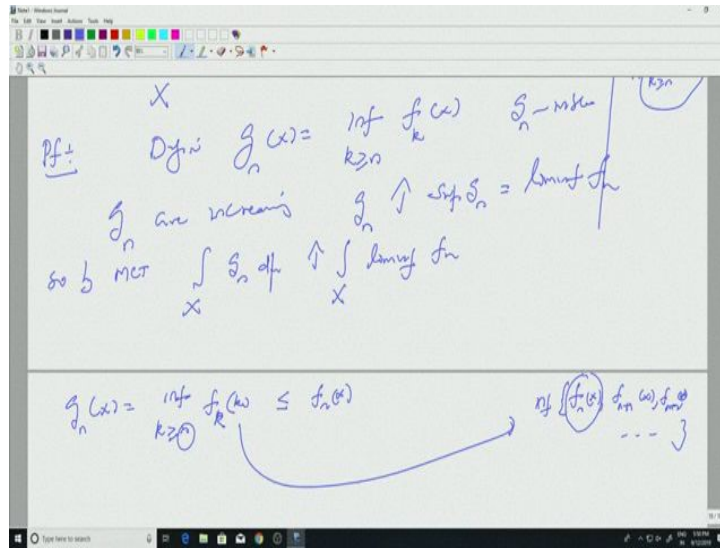 Note1 - Windows Journal
File Edit View Insert Actions Tools Help
k≥n
X
Pf: Define g_n(x) = inf_{k≥n} f_k(x) g_n - mble
g_n are increasing g_n ↑ sup g_n = liminf f_n
so by MCT ∫_X g_n dμ ↑ ∫_X liminf f_n
g_n(x) = inf_{k≥n} f_k(x) ≤ f_n(x) inf { f_n(x), f_{n+1}(x), f_{n+2}(x)
---- }
Type here to search
ENG 5:50 PM
IN 9/12/2019